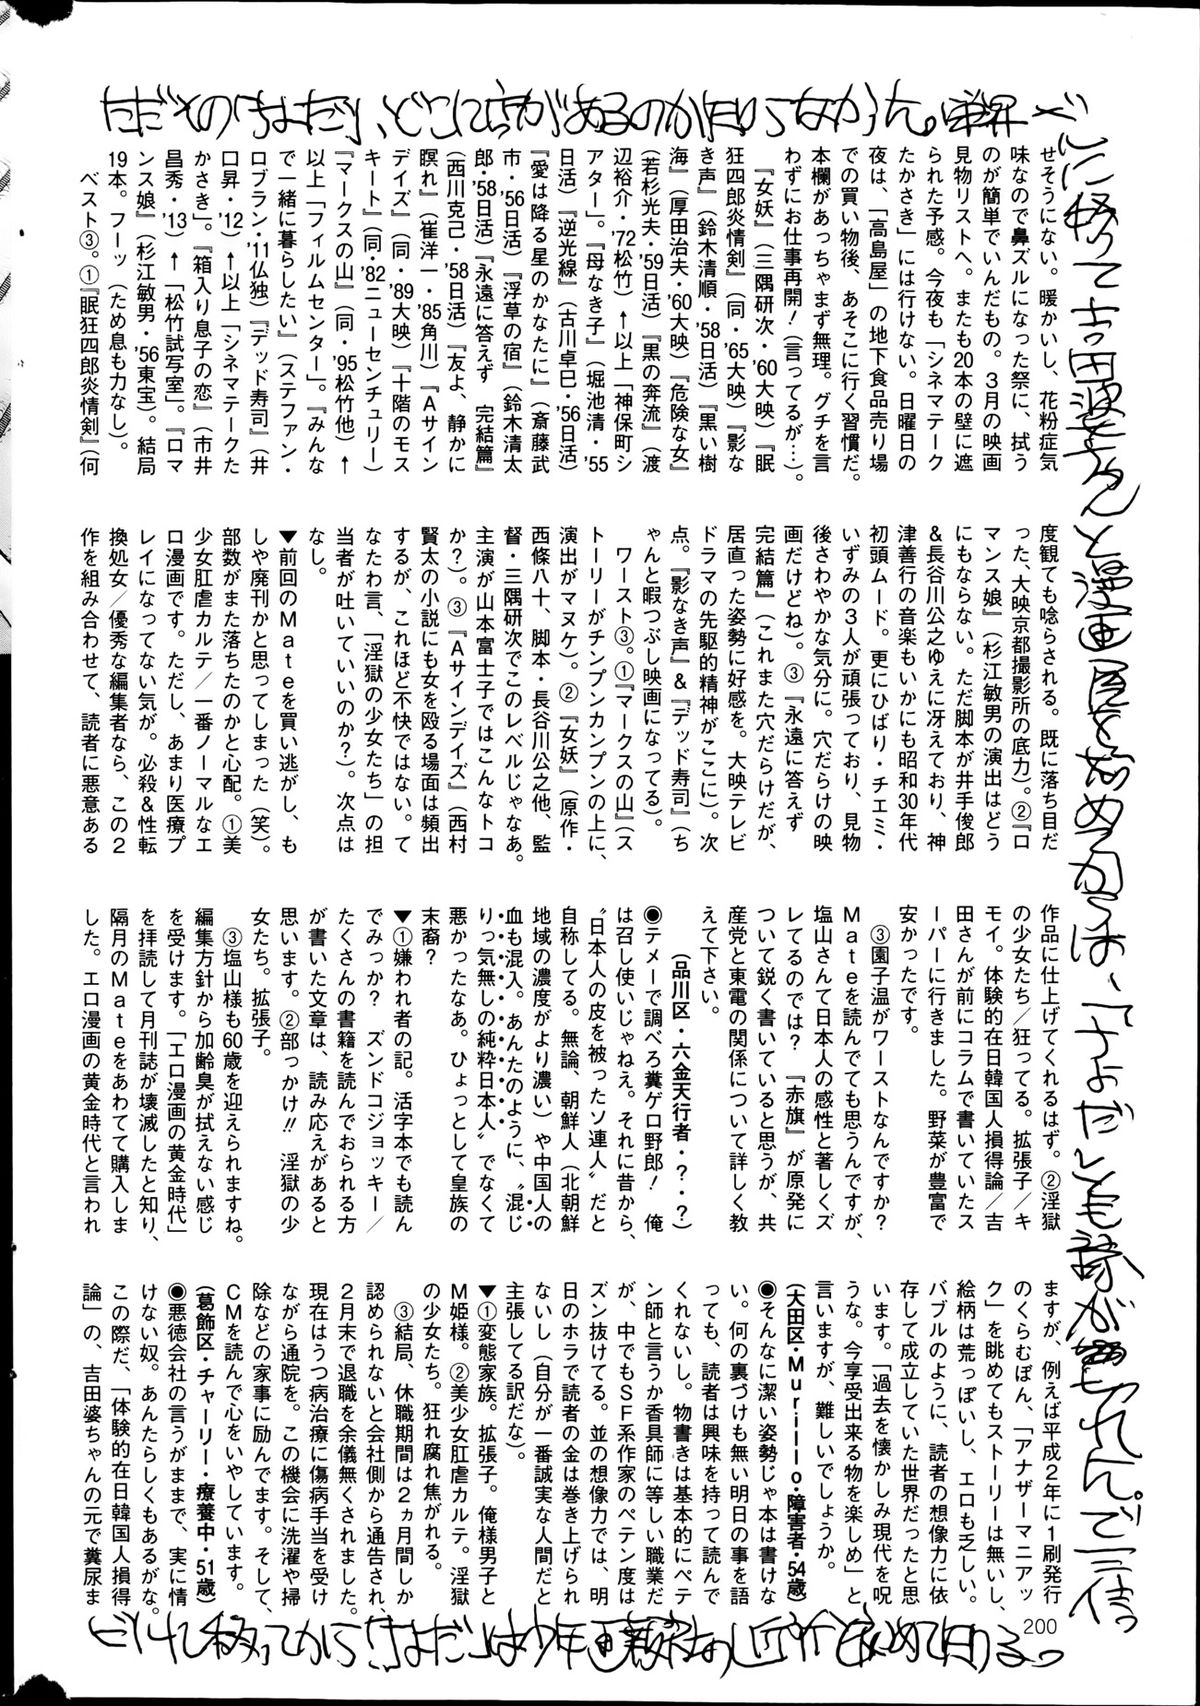 せそうにない。暖かいし、花粉症気
味なので鼻ズルになった祭に、拭う
のが簡単でいんだもの。3月の映画
見物リストへ。またも20本の壁に遮
られた予感。今夜も「シネマテーク
たかさき」には行けない。日曜日の
夜は、「高島屋」の地下食品売り場
での買い物後、あそこに行く習慣だ。
本欄があっちゃまず無理。グチを言
わずにお仕事再開!(言ってるが…)。
『女妖』(三隅研次・'60大映)『眠
狂四郎炎情剣』(同・'65大映)『影な
き声』(鈴木清順・'58日活)『黒い樹
海』(厚田治夫・'60大映)『危険な女』
(若杉光夫・'59日活)『黒の奔流』(渡
辺裕介・'72松竹)↑以上「神保町シ
アター」。『母なき子』(堀池清・'55
日活)『逆光線』(古川卓巳・'56日活)
『愛は降る星のかなたに』(斎藤武
市・'56日活)『浮草の宿』(鈴木清太
郎・'58日活)『永遠に答えず 完結篇』
(西川克己・'58日活)『友よ、静かに
瞑れ』(崔洋一・'85角川)『Aサイン
デイズ』(同・'89大映)『十階のモス
キート』(同・'82ニューセンチュリー)
『マークスの山』(同・'95松竹他)↑
以上「フィルムセンター」。『みんな
で一緒に暮らしたい』(ステファン・
ロブラン・'11仏独)『デッド寿司』(井
口昇・'12)↑以上「シネマテークた
かさき」。『箱入り息子の恋』(市井
昌秀・'13)↑「松竹試写室」。『ロマ
ンス娘』(杉江敏男・'56東宝)。結局
19本。フーッ(ため息も力なし)。
ベスト③。①『眠狂四郎炎情剣』(何
度観ても唸らされる。既に落ち目だ
った、大映京都撮影所の底力)。②『ロ
マンス娘』(杉江敏男の演出はどう
にもならない。ただ脚本が井手俊郎
&長谷川公之ゆえに冴えており、神
津善行の音楽もいかにも昭和30年代
初頭ムード。更にひばり・チエミ・
いずみの3人が頑張っており、見物
後さわやかな気分に。穴だらけの映
画だけどね)。③『永遠に答えず
完結篇』(これまた穴だらけだが、
居直った姿勢に好感を。大映テレビ
ドラマの先駆的精神がここに)。次
点。『影なき声』&『デッド寿司』(ち
ゃんと暇つぶし映画になってる)。
ワースト③。①『マークスの山』(ス
トーリーがチンプンカンプンの上に、
演出がマヌケ)。②『女妖』(原作・
西條八十、脚本・長谷川公之他、監
督・三隅研次でこのレベルじゃなあ。
主演が山本富士子ではこんなトコ
か?)。③『Aサインデイズ』(西村
賢太の小説にも女を殴る場面は頻出
するが、これほど不快ではない。て
なたわ言、「淫獄の少女たち」の担
当者が吐いていいのか?)。次点は
なし。
▼前回のMateを買い逃がし、も
しや廃刊かと思ってしまった(笑)。
部数がまた落ちたのかと心配。①美
少女肛虐カルテ/一番ノーマルなエ
ロ漫画です。ただし、あまり医療プ
レイになってない気が。必殺&性転
換処女/優秀な編集者なら、この2
作を組み合わせて、読者に悪意ある
作品に仕上げてくれるはず。②淫獄
の少女たち/狂ってる。拡張子/キ
モイ。体験的在日韓国人損得論/吉
田さんが前にコラムで書いていたス
ーパーに行きました。野菜が豊富で
安かったです。
③園子温がワーストなんですか?
Mateを読んでても思うんですが、
塩山さんて日本人の感性と著しくズ
レてるのでは? 『赤旗』が原発に
ついて鋭く書いていると思うが、共
産党と東電の関係について詳しく教
えて下さい。
(品川区・六金天行者・?・?)
◉テメーで調べろ糞ゲロ野郎! 俺
は召し使いじゃねえ。それに昔から、
〝日本人の皮を被ったソ連人〟だと
自称してる。無論、朝鮮人(北朝鮮
地域の濃度がより濃い)や中国人の
血も混入。あんたのように、〝混じ
りっ気無しの純粋日本人〟でなくて
悪かったなあ。ひょっとして皇族の
末裔?
▼①嫌われ者の記。活字本でも読ん
でみっか? ズンドコジョッキー/
たくさんの書籍を読んでおられる方
が書いた文章は、読み応えがあると
思います。②部っかけ!! 淫獄の少
女たち。拡張子。
③塩山様も60歳を迎えられますね。
編集方針から加齢臭が拭えない感じ
を受けます。「エロ漫画の黄金時代」
を拝読して月刊誌が壊滅したと知り、
隔月のMateをあわてて購入しま
した。エロ漫画の黄金時代と言われ
ますが、例えば平成2年に1刷発行
のくらむぼん、「アナザーマニアッ
ク」を眺めてもストーリーは無いし、
絵柄は荒っぽいし、エロも乏しい。
バブルのように、読者の想像力に依
存して成立していた世界だったと思
います。「過去を懐かしみ現代を呪
うな。今享受出来る物を楽しめ」と
言いますが、難しいでしょうか。
(大田区・Murillo・障害者・54歳)
◉そんなに潔い姿勢じゃ本は書けな
い。何の裏づけも無い明日の事を語
っても、読者は興味を持って読んで
くれないし。物書きは基本的にペテ
ン師と言うか香具師に等しい職業だ
が、中でもSF系作家のペテン度は
ズン抜けてる。並の想像力では、明
日のホラで読者の金は巻き上げられ
ないし(自分が一番誠実な人間だと
主張してる訳だな)。
▼①変態家族。拡張子。俺様男子と
M姫様。②美少女肛虐カルテ。淫獄
の少女たち。狂れ腐れ焦がれる。
③結局、休職期間は2ヵ月間しか
認められないと会社側から通告され、
2月末で退職を余儀無くされました。
現在はうつ病治療に傷病手当を受け
ながら通院を。この機会に洗濯や掃
除などの家事に励んでます。そして、
CMを読んで心をいやしています。
(葛飾区・チャーリー・療養中・51歳)
◉悪徳会社の言うがままで、実に情
けない奴。あんたらしくもあるがな。
この際だ、「体験的在日韓国人損得
論」の、吉田婆ちゃんの元で糞尿ま
200